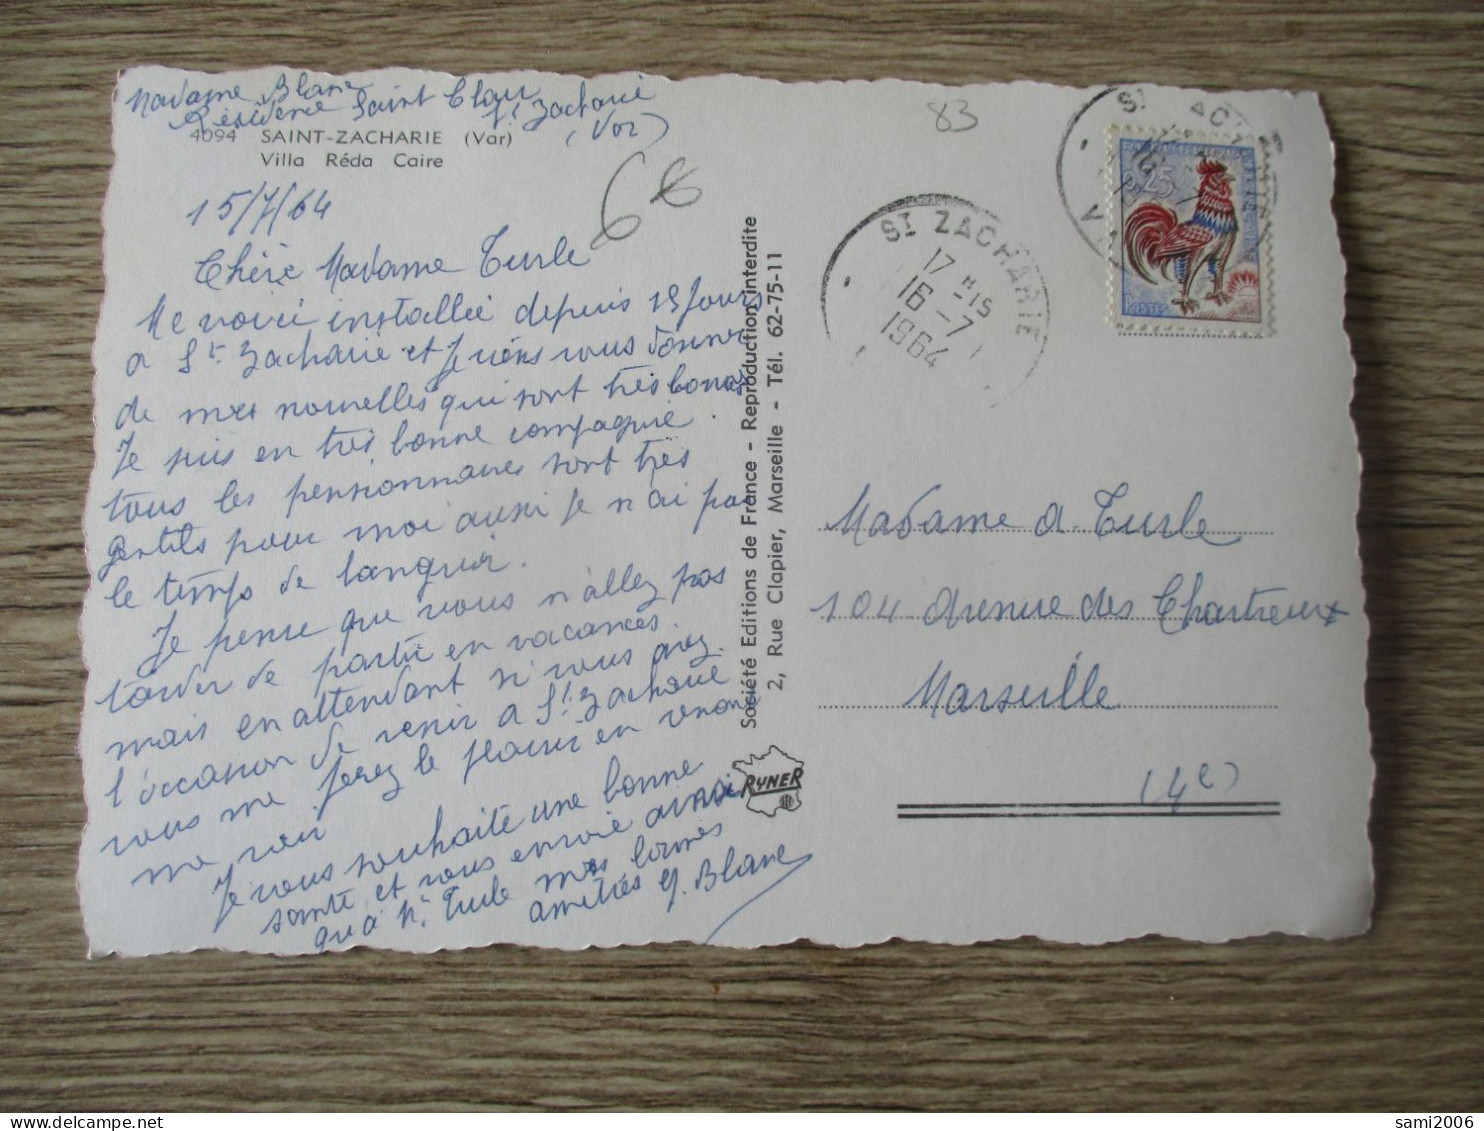 Madame Blanc
Résidence Saint Clair
St. Zacharie
(Var)
4094 SAINT-ZACHARIE (Var)
Villa Réda Caire
83
6€
15/7/64
Chère Madame Turle
Me voici installée depuis 15 jours
a St. Zacharie et Je viens vous donner
de mes nouvelles qui sont très bonnes
Je suis en très bonne compagnie.
tous les pensionnaires sont très
gentils pour moi aussi Je n'ai pas
le temps de languir.
Je pense que vous n'allez pas
tarder de partir en vacances.
mais en attendant si vous avez
l'occasion de venir a St. Zacharie
vous me ferez le plaisir en venant
me voir
Je vous souhaite une bonne
santé et vous envoie ainsi
qu'a Mr. Turle mes bonnes
amitiés G. Blanc
Société Editions de France - Reproduction interdite
2, Rue Clapier, Marseille - Tél. 62-75-11
RYNER
ST ZACHARIE
17 H 15
16 -7
1964
ST ZAC
0,25
POSTES
Madame A. Turle
104 Avenue des Chartreux
Marseille
(4e)
delcampe.net
sami2006